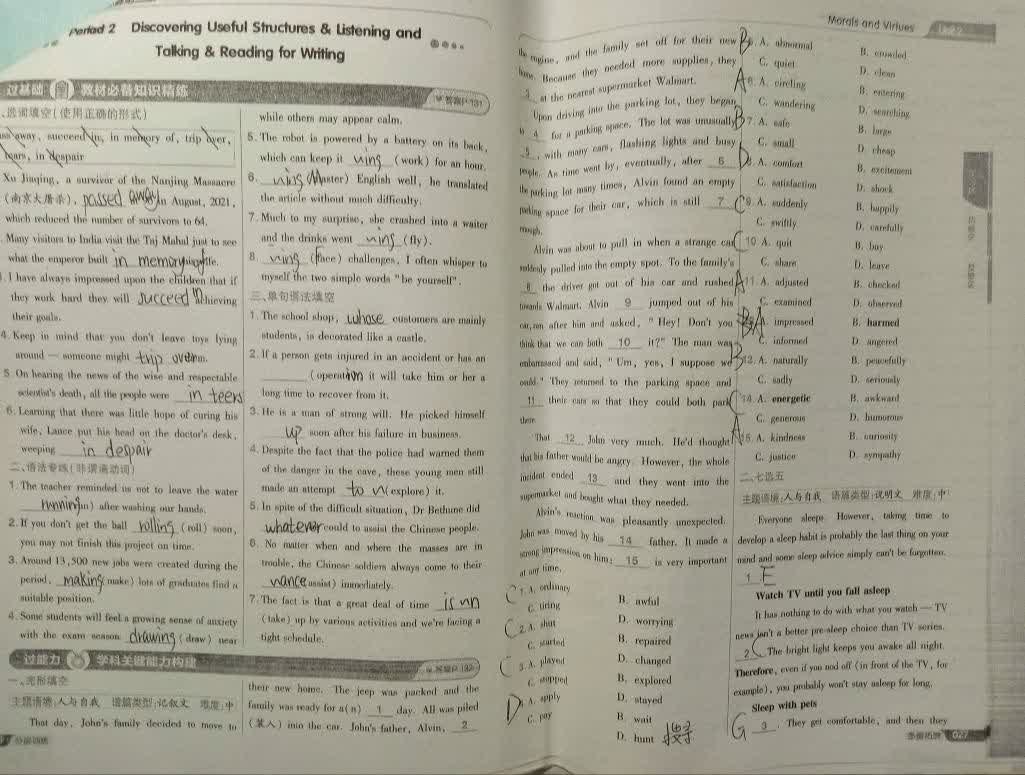 Period 2 Discovering Useful Structures & Listening and
Talking & Reading for Writing
过基础 教材必备知识精练
答案P.131
一、选词填空(使用正确的形式)
away, succeed in, in memory of, trip over,
tears, in despair
Xu Jiaqing, a survivor of the Nanjing Massacre
(南京大屠杀), passed away in August, 2021,
which reduced the number of survivors to 64.
Many visitors to India visit the Taj Mahal just to see
what the emperor built in memory wife.
I have always impressed upon the children that if
they work hard they will succeed in achieving
their goals.
4. Keep in mind that you don't leave toys lying
around — someone might trip over them.
5. On hearing the news of the wise and respectable
scientist's death, all the people were in teers
6. Learning that there was little hope of curing his
wife, Lance put his head on the doctor's desk,
weeping in despair
二、语法专练(非谓语动词)
1. The teacher reminded us not to leave the water
running after washing our hands.
2. If you don't get the ball rolling (roll) soon,
you may not finish this project on time.
3. Around 13,500 new jobs were created during the
period, making (make) lots of graduates find a
suitable position.
4. Some students will feel a growing sense of anxiety
with the exam season drawing (draw) near
while others may appear calm.
5. The robot is powered by a battery on its back,
which can keep it ving (work) for an hour.
6. ving (Master) English well, he translated
the article without much difficulty.
7. Much to my surprise, she crashed into a waiter
and the drinks went ving (fly).
8. ving (face) challenges, I often whisper to
myself the two simple words "be yourself".
三、单句语法填空
1. The school shop, whose customers are mainly
students, is decorated like a castle.
2. If a person gets injured in an accident or has an
(operation) it will take him or her a
long time to recover from it.
3. He is a man of strong will. He picked himself
up soon after his failure in business.
4. Despite the fact that the police had warned them
of the danger in the cave, these young men still
made an attempt to v (explore) it.
5. In spite of the difficult situation, Dr Bethune did
whatever could to assist the Chinese people.
6. No matter when and where the masses are in
trouble, the Chinese soldiers always come to their
(assist) immediately.
7. The fact is that a great deal of time is
(take) up by various activities and we're facing a
tight schedule.
过能力 学科关键能力构建
答案P.132
一、完形填空
主题语境:人与自我 语篇类型:记叙文 难度:中
That day, John's family decided to move to
their new home. The jeep was packed and the
family was ready for a(n) 1 day. All was piled
(装入) into the car. John's father, Alvin, 2
Morals and Virtues
the engine, and the family set off for their new
home. Because they needed more supplies, they
3 at the nearest supermarket Walmart.
Upon driving into the parking lot, they began
to 4 for a parking space. The lot was unusually
5, with many cars, flashing lights and busy
people. As time went by, eventually, after 6
the parking lot many times, Alvin found an empty
parking space for their car, which is still 7
enough.
Alvin was about to pull in when a strange car
suddenly pulled into the empty spot. To the family's
8 the driver got out of his car and rushed
towards Walmart. Alvin 9 jumped out of his
car, ran after him and asked, "Hey! Don't you
think that we can both 10 it?" The man was
embarrassed and said, "Um, yes, I suppose we
could." They returned to the parking space and
11 their cars so that they could both park
there.
That 12 John very much. He'd thought
that his father would be angry. However, the whole
incident ended 13 and they went into the
supermarket and bought what they needed.
Alvin's reaction was pleasantly unexpected.
John was moved by his 14 father. It made a
strong impression on him; 15 is very important
at any time.
C 1. A. ordinary B. awful
C. tiring D. worrying
C 2. A. shut B. repaired
C. started D. changed
C 3. A. played B. explored
C. stopped D. stayed
D 4. A. apply B. wait
C. pay D. hunt 搜寻
B 5. A. abnormal B. crowded
C. quiet D. clean
A 6. A. circling B. entering
C. wandering D. searching
B 7. A. safe B. large
C. small D. cheap
A. comfort B. excitement
C. satisfaction D. shock
C 9. A. suddenly B. happily
C. swiftly D. carefully
C 10 A. quit B. buy
C. share D. leave
A 11. A. adjusted B. checked
C. examined D. observed
A. impressed B. harmed
C. informed D. angered
B A. naturally B. peacefully
C. sadly D. seriously
C 14. A. energetic B. awkward
C. generous D. humorous
A 15. A. kindness B. curiosity
C. justice D. sympathy
二、七选五
主题语境:人与自我 语篇类型:说明文 难度:中
Everyone sleeps. However, taking time to
develop a sleep habit is probably the last thing on your
mind and some sleep advice simply can't be forgotten.
1 E
Watch TV until you fall asleep
It has nothing to do with what you watch — TV
news isn't a better pre-sleep choice than TV series.
2 C The bright light keeps you awake all night.
Therefore, even if you nod off (in front of the TV, for
example), you probably won't stay asleep for long.
Sleep with pets
G 3. They get comfortable, and then they
027